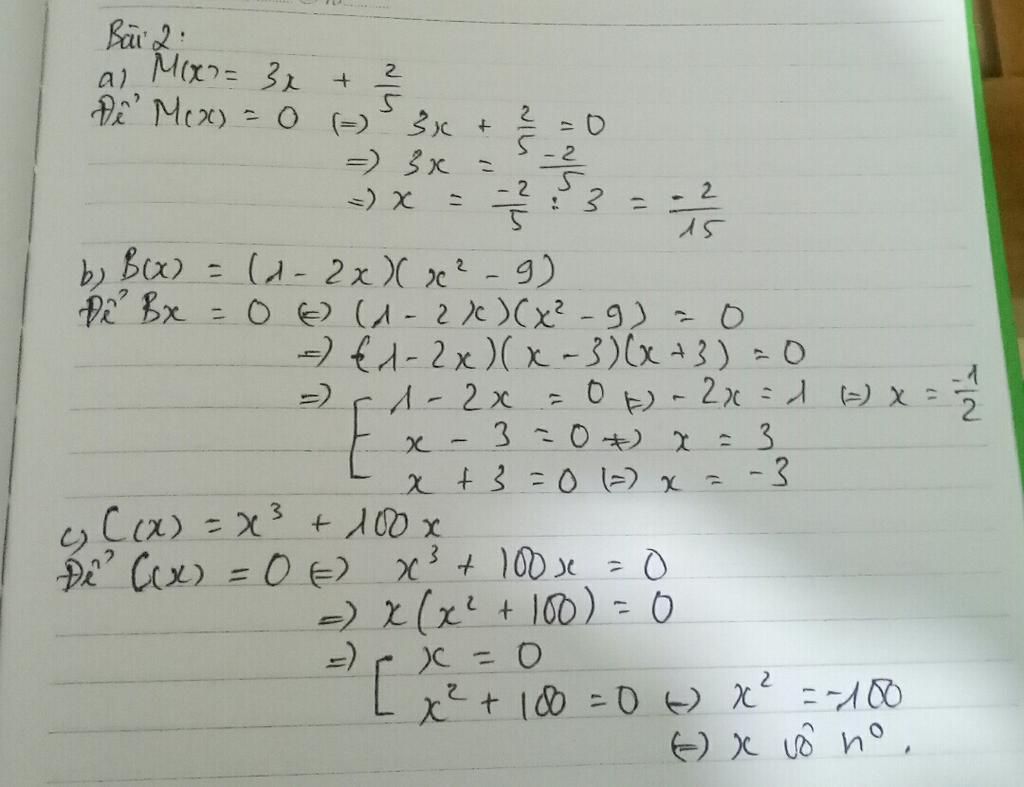 Bài 2:
a) M(x) = 3x + 2/5
Để M(x) = 0 (=) 3x + 2/5 = 0
=) 3x = -2/5
=) x = -2/5 : 3 = -2/15
b) B(x) = (1 - 2x)(x² - 9)
Để Bx = 0 (=) (1 - 2x)(x² - 9) = 0
=) (1 - 2x)(x - 3)(x + 3) = 0
=) [ 1 - 2x = 0 (=) - 2x = 1 (=) x = -1/2
x - 3 = 0 (=) x = 3
x + 3 = 0 (=) x = -3
c) C(x) = x³ + 100x
Để C(x) = 0 (=) x³ + 100x = 0
=) x(x² + 100) = 0
=) [ x = 0
x² + 100 = 0 (=) x² = -100
(=) x vô nº.